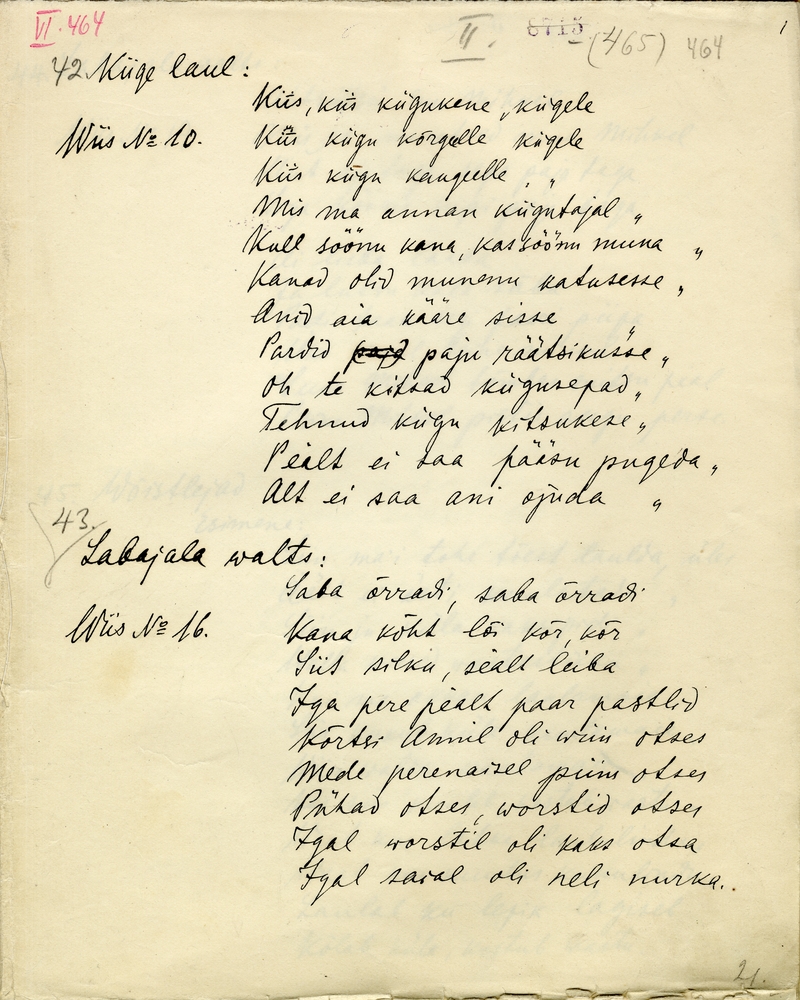 VI. 464
II. 8715 (465) 464
1
42. Kiige laul:
Kiis, kiis kiigukene, kiigele
Wiis № 10. Kiis kiigu kõrgelle kiigele
Kiis kiigu kaugelle „ „
Mis ma annan kiigutajal „
Kull söönu kana, kas söönu muna „
Kanad olid munenu katusesse „
Anid aia kääre sisse
Pardid paju räätsikusse „
Oh te kitsad kiigusepad „
Tehnud kiigu kitsukese „
Pealt ei saa pääsu pugeda „
Alt ei saa ani ojuda „
43.
Labajala walts:
Saba õrradi, saba õrradi
Wiis № 16. Kana kõht lõi kõr, kõr
Siit silku, sealt leiba
Iga pere pealt paar pastlid
Kõrtsi Annil oli wiin otses
Mede perenaisel piim otses
Pühad otses, worstid otses
Igal worstil oli kaks otsa
Igal saial oli neli nurka.
21.